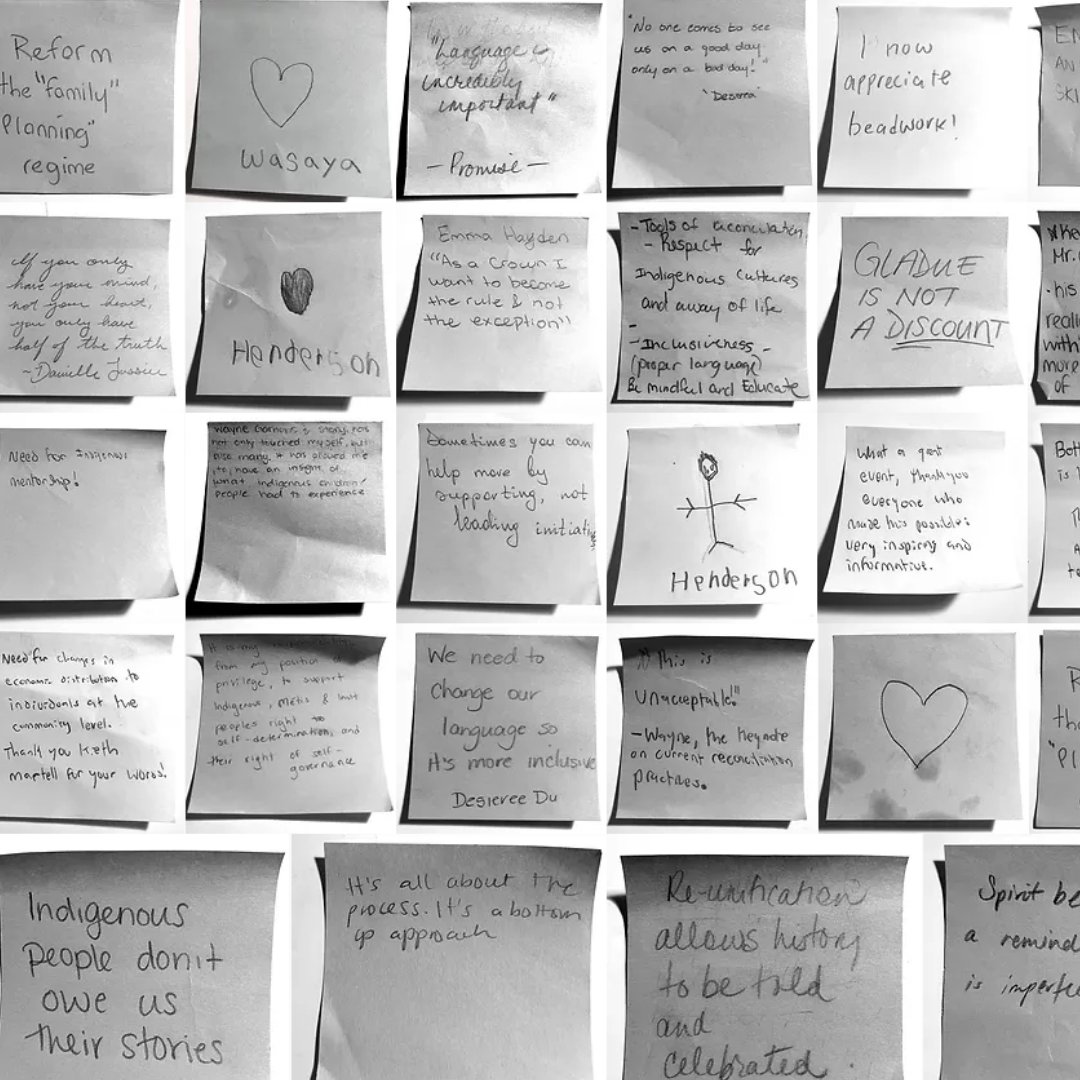 Reform
the "family"
Planning"
regime
wasaya
"Language is
incredibly
important"
— Promise —
"No one comes to see
us on a good day
only on a bad day!"
I now
appreciate
beadwork!
EN
AN
SKI
If you only
have your mind,
not your heart,
you only have
half of the truth
~Danielle
Henderson
Emma Hayden
"As a Crown I
want to become
the rule & not
the exception"
-Tools of reconciliation,
- Respect for
Indigenous Cultures
and away of life
-
-Inclusiveness -
(proper language)
Be mindful and Educate
GLADUE
IS NOT
A DISCOUNT
Mr.
- his
reali
with
more
of
Need for Indigenous
mentorship!
Wayne story, has
not only touched myself, but
also many. It has allowed me
to, have an insight of
what indigenous children/
people had to experience
Sometimes you can
help more by
supporting, not
leading
Henderson
What a great
event, thank you
everyone who
made this possible:
very inspiring and
informative.
Bott
is
Need for changes in
economic distribution to
individuals at the
community level.
Thank you Keith
martell for your words!
It is my
from my position of
privilege, to support
Indigenous, Métis & Inuit
peoples right to
self-determination, and
their right of self-
governance
We need to
change our
language so
it's more inclusive
Desieree Du
This is
Unacceptable!!
-Wayne, the Keynote
on current reconciliation
practices.
R
tha
"Pl
Indigenous
people don't
owe us
their stories
It's all about the
process. It's a bottom
up approach
Re-unification
allows history
to be told
and
celebrated.
Spirit be
a remind
is imperfe